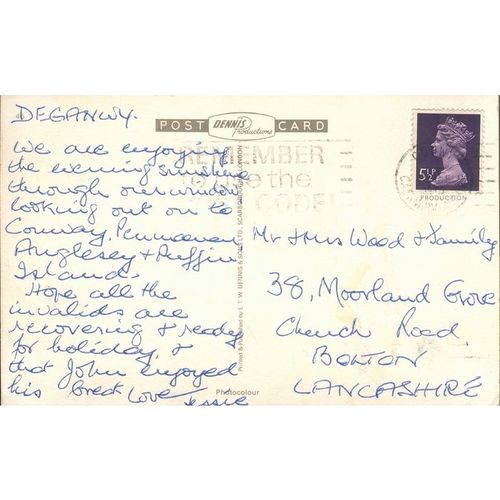 DEGANWY.
We are enjoying
the evening sunshine
through our window
looking out on to
Conway, Penmaenmawr
Anglesey & Puffin
Island.
Hope all the
invalids are
recovering & ready
for holiday, &
that John enjoyed
his break Love Jessie
POST CARD
DENNIS
Productions
REMEMBER
to use the
POST CODE
5½P
PRODUCTION
Printed & Published by E.T.W. DENNIS & SONS LTD., SCARBOROUGH & LONDON
Photocolour
Mr & Mrs Wood & Family
38, Moorland Grove
Church Road,
BOLTON
LANCASHIRE